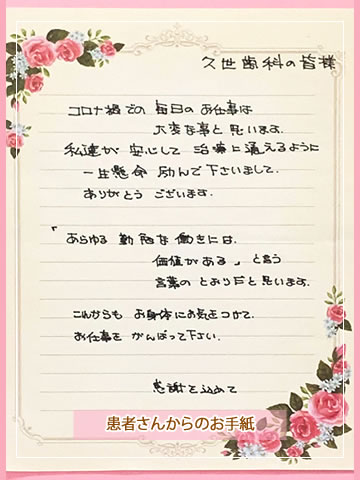 久世歯科の皆様
コロナ禍での 毎日の お仕事は
大変な事と 思います。
私達が 安心して 治療に通えるように
一生懸命 励んで下さいまして、
ありがとう ございます。
「あらゆる 勤勉な働きには、
価値がある」と言う
言葉の とおりだと思います。
これからも お身体にお気をつけて、
お仕事を がんばって下さい。
感謝を込めて
患者さんからのお手紙